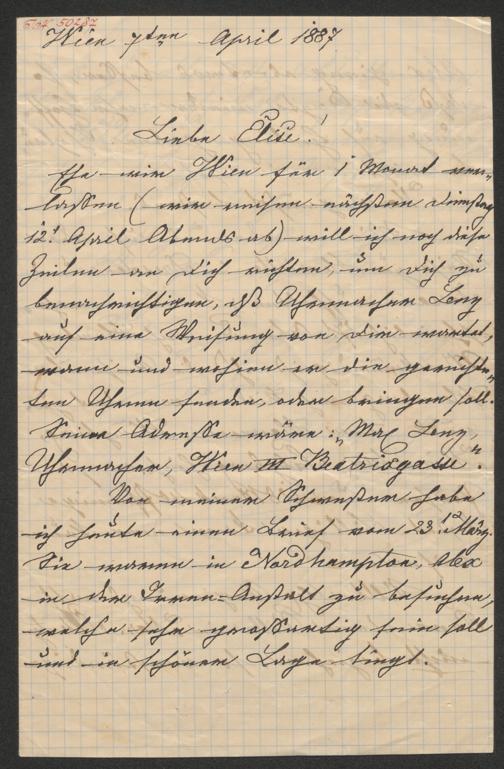 Wien 7ten April 1887
Liebe Elise!
Ehe wir Wien für 1 Monat ver-
lassen (wir reisen nächsten Dienstag
12t April Abends ab) will ich noch diese
Zeilen an Dich richten, um Dich zu
benachrichtigen, dß Uhrmacher Leng
auf eine Weisung von Dir wartet,
wann und wohin er die gerichte-
ten Uhren senden, oder bringen soll.
Seine Adresse wäre: „Max Leng,
Uhrmacher, Wien III Beatrixgasse".
Von meiner Schwester habe
ich heute einen Brief vom 23t März.
Sie waren in Nordhampton,
in der Irren-Anstalt zu besuchen,
welche sehr großartig sein soll
und in schöner Lage liegt.